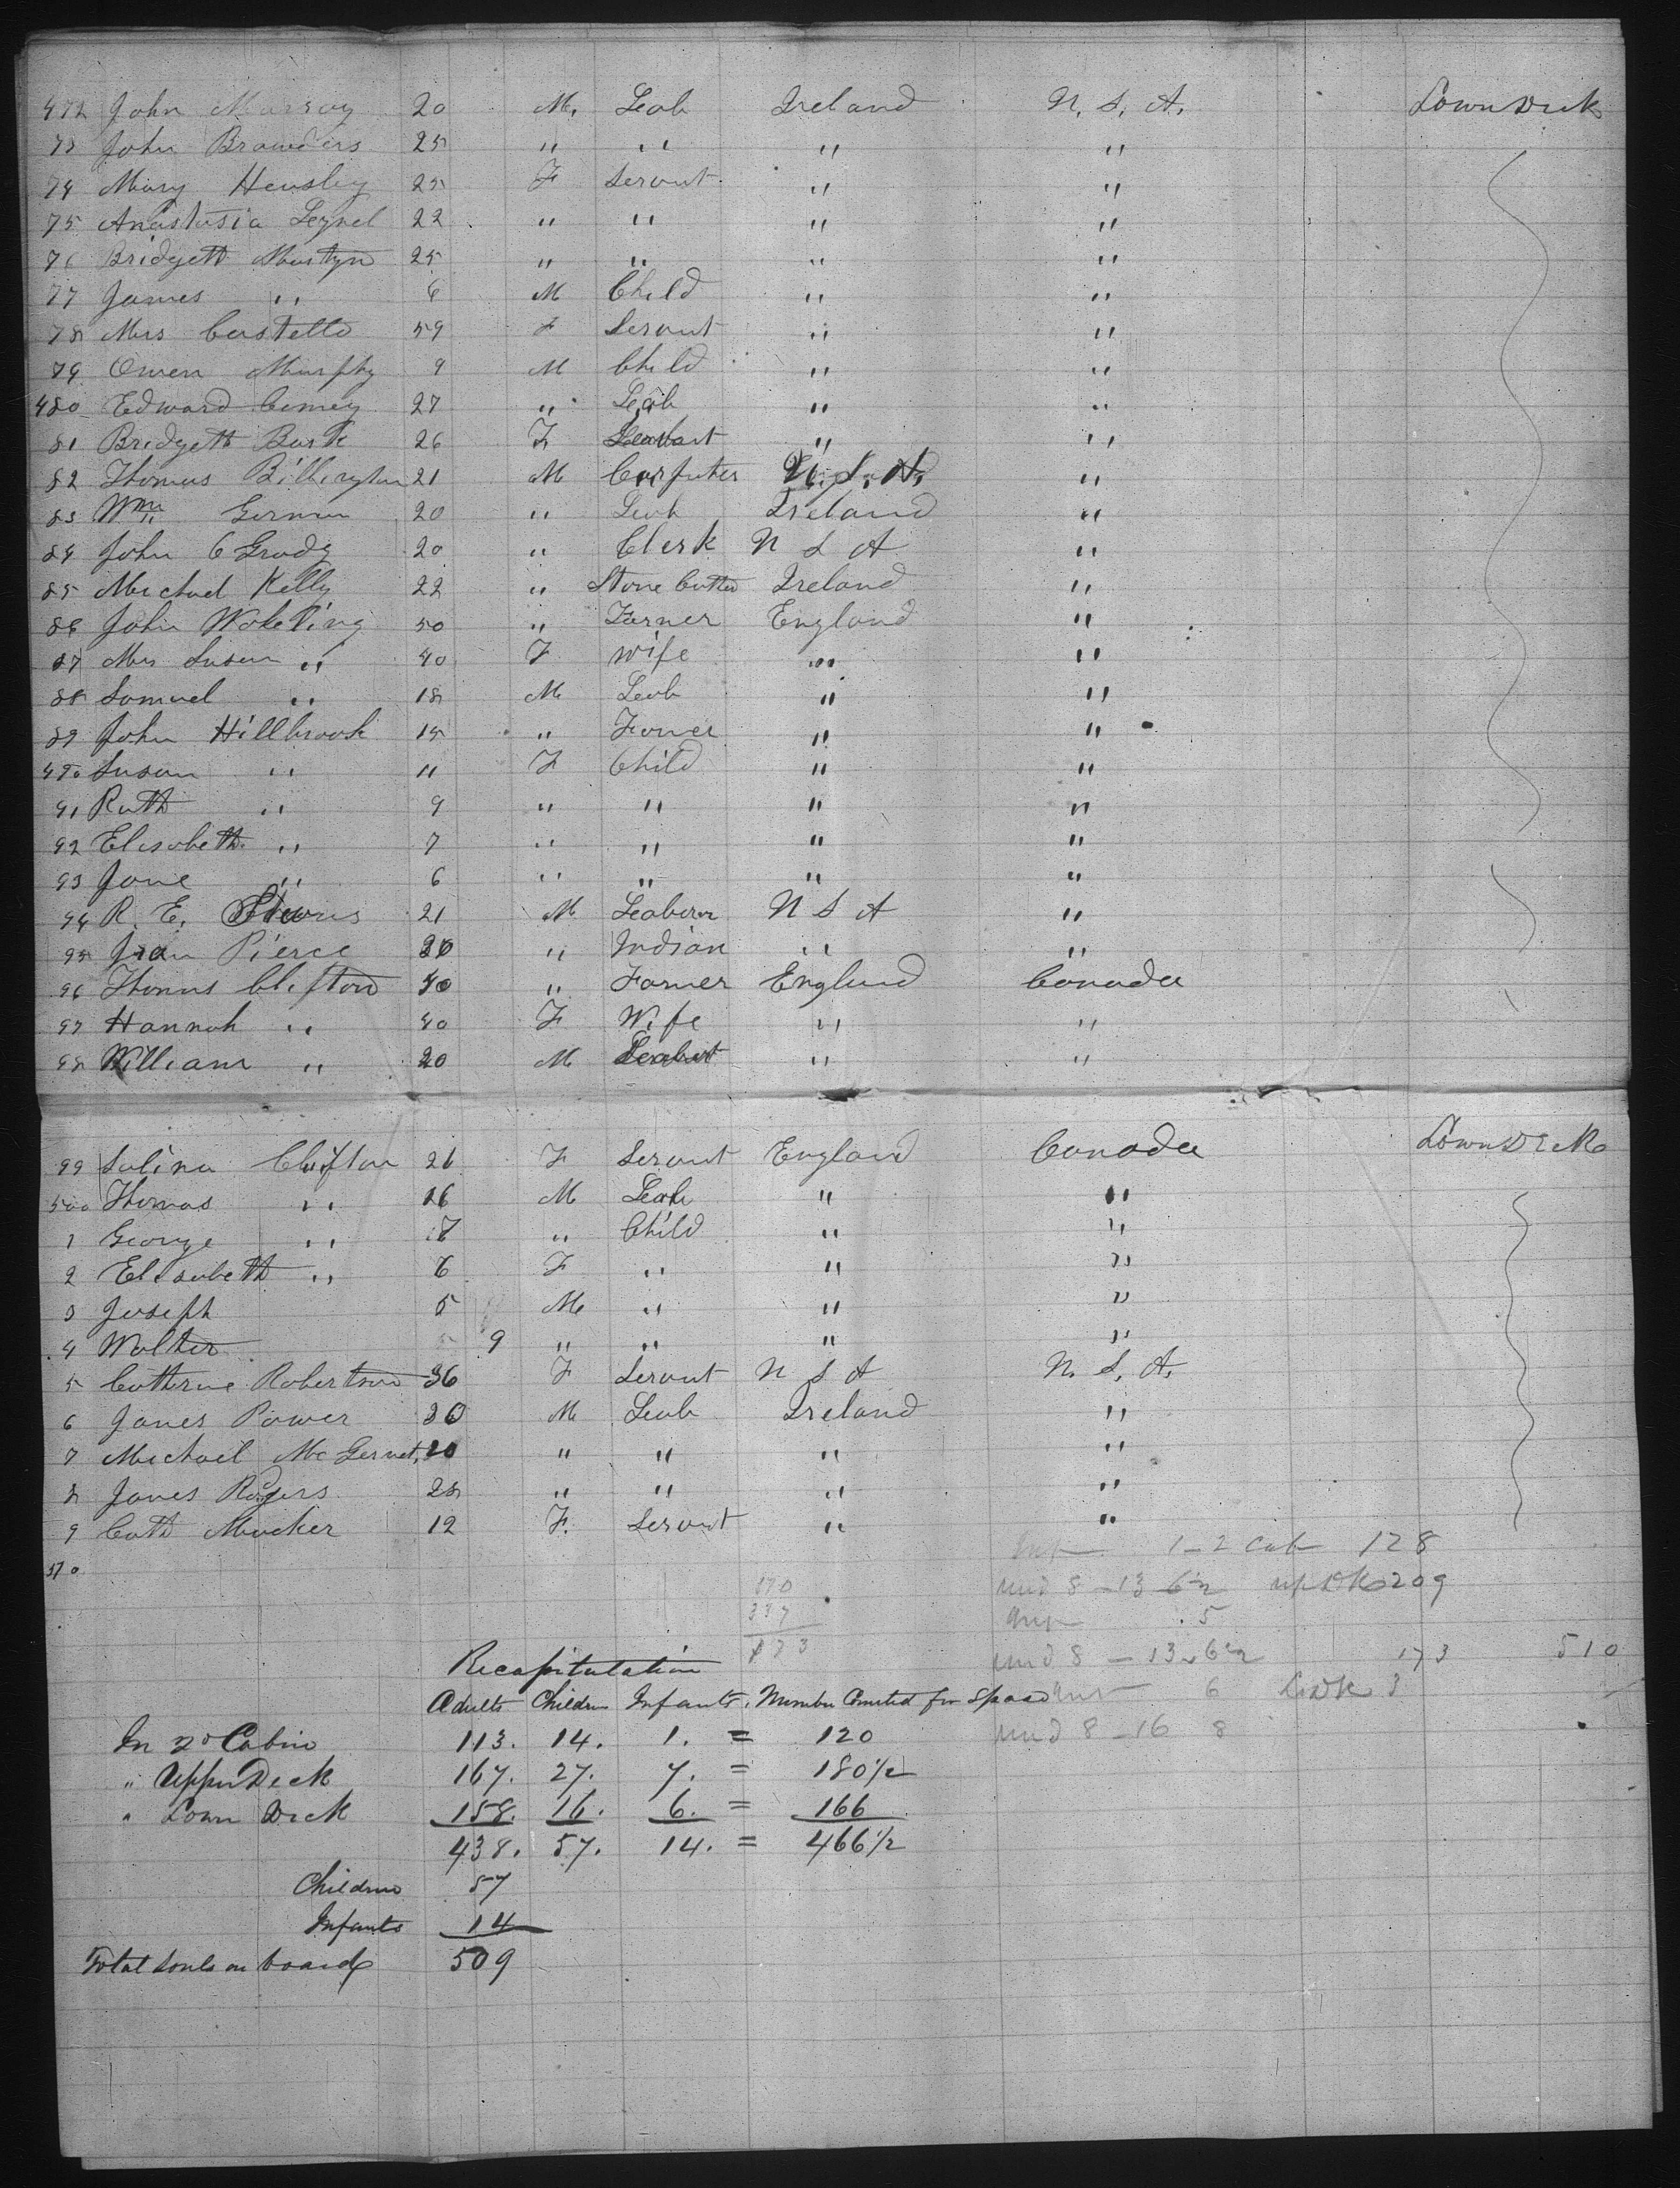 472 John Murray 20 M. Leab Ireland U. S. A. Lower Deck
73 John Browders 25 " " " "
74 Mary Hensley 25 F Servut " "
75 Anastasia 22 " " " "
76 Bridgett Martyn 25 " " " "
77 James " 6 M Child " "
78 Mrs Costello 59 F Servut " "
79 Owen Murphy 9 M Child " "
480 Edward 27 " Leab " "
81 Bridgett Burk 26 F " "
82 Thomas Billington 21 M U. S. A. "
83 Wm Gorman 20 " Leab Ireland "
84 John O Grady 20 " Clerk U S A "
85 Michael Kelly 22 " Stone Cutter Ireland "
86 John Wakeling 50 " Farmer England "
87 Mrs Susan " 40 F wife " "
88 Samuel " 18 M Leab " "
89 John Hillbrook 15 " Farmer " "
490 Susan " 11 F Child " "
91 Ruth " 9 " " " "
92 Elisabeth " 7 " " " "
93 Jane " 6 " " " "
94 R. E. 21 M Leaberer U S A "
95 Pierce " Indian " "
96 Thomas Clifton 40 " Farmer England Canada
97 Hannah " 40 F Wife " "
98 William " 20 M " "
99 Salina Clifton 26 F Servant England Canada Lower Deck
500 Thomas " 16 M Leab " "
1 George " " Child " "
2 Elisabeth " 6 F " " "
3 Joseph 5 M " " "
4 Walter 9 " " " "
5 Catherine Robertson 36 F Servant U S A U. S. A.
6 James Power 30 M Leab Ireland "
7 Michael 20 " " " "
8 James Rogers 28 " " " "
9 Cath Mucker 12 F. Servant " "
510
Inf 1 - 2 Cab 128
und 8 - 13 6½ up Dk 209
Inf 5
und 8 - 13 6½ 173 510
Recapitulation
Adults Children Infants. Number Counted for Space
In 2d Cabin 113. 14. 1. = 120
" Upper Deck 167. 27. 7. = 180½
" Lower Deck 158. 16. 6. = 166
438. 57. 14. = 466½
Children 57
Infants 14
Total Souls on board 509